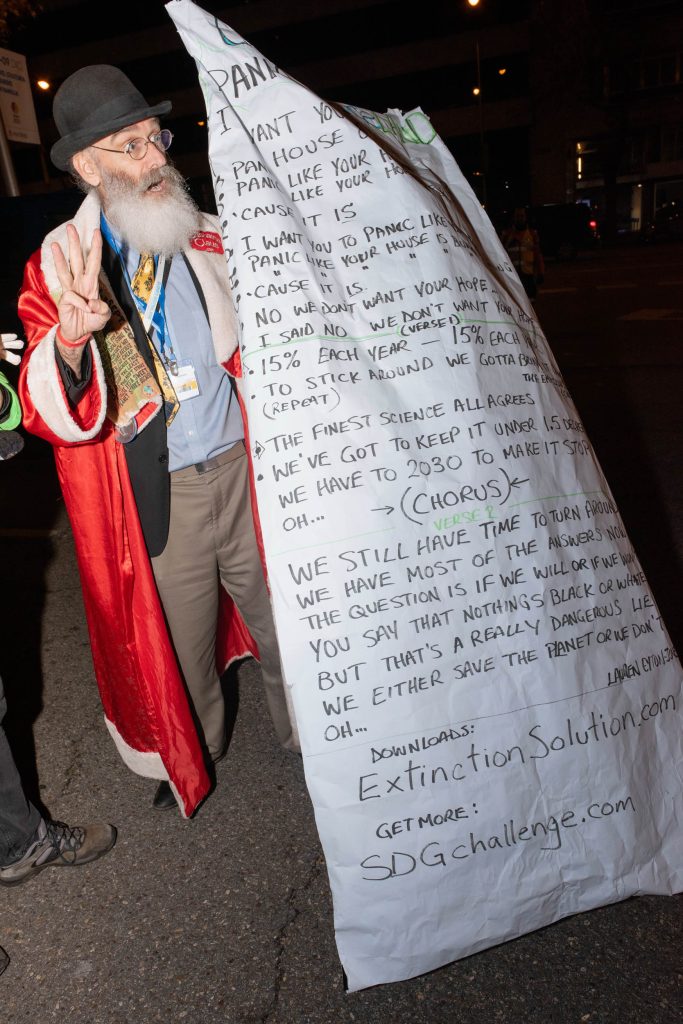 PANIC
I WANT YOU
PANIC LIKE YOUR HOUSE
PANIC LIKE YOUR
'CAUSE IT IS
I WANT YOU TO PANIC LIKE
PANIC LIKE YOUR HOUSE IS
'CAUSE IT IS.
NO WE DON'T WANT YOUR HOPE..
I SAID NO WE DON'T WANT YOUR HOPE
(VERSE 1)
15% EACH YEAR — 15% EACH
TO STICK AROUND WE GOTTA
(REPEAT)
THE FINEST SCIENCE ALL AGREES
WE'VE GOT TO KEEP IT UNDER 1.5
WE HAVE TO 2030 TO MAKE IT STOP
OH... → (CHORUS) ←
VERSE 2
WE STILL HAVE TIME TO TURN AROUND
WE HAVE MOST OF THE ANSWERS NOW
THE QUESTION IS IF WE WILL OR IF WE
YOU SAY THAT NOTHINGS BLACK OR
BUT THAT'S A REALLY DANGEROUS LIE
WE EITHER SAVE THE PLANET OR WE DON'T
LAUREN
OH...
DOWNLOADS:
ExtinctionSolution.com
GET MORE:
SDGchallenge.com